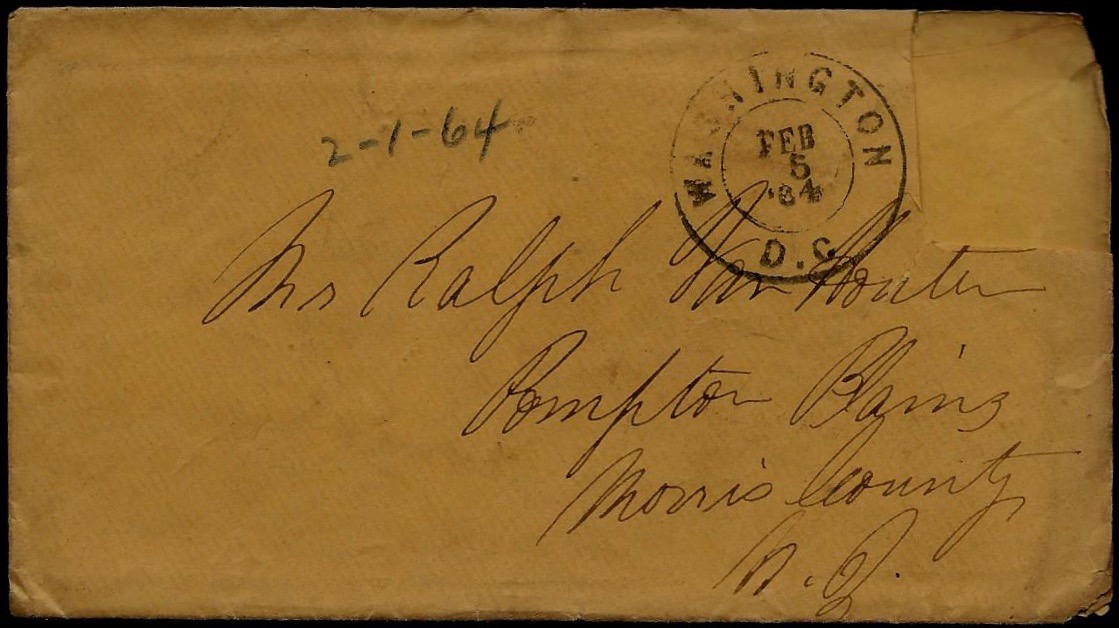 2-1-64
WASHINGTON
FEB
5
'64
D.C.
Mr Ralph Van Houten
Pompton Plains
Morris County
N.J.